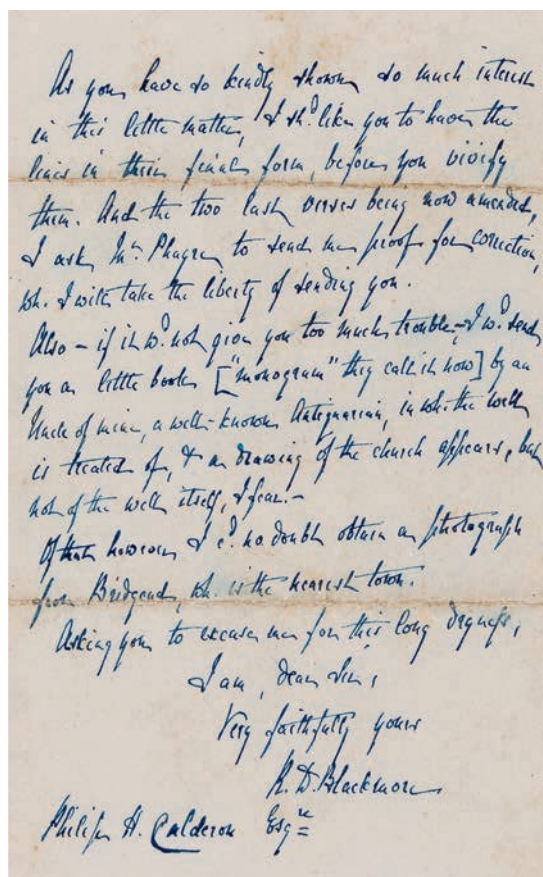 As you have so kindly shown so much interest
in this little matter, I shd. like you to have the
lines in their final form, before you vivify
them. And the two last verses being now amended,
I ask Mr. Phayre to send me proof for correction,
wh. I will take the liberty of sending you.
Also – if it wd. not give you too much trouble – I wd. send
you a little book ["monogram" they call it now] by an
Uncle of mine, a well-known Antiquarian, in wh. the well
is treated of, & a drawing of the church appears, but
not of the well itself, I fear. –
Of that however I cd. no doubt obtain a photograph
from Bridgend, wh. is the nearest town.
Asking you to excuse me for this long
I am, dear Sir,
Very faithfully yours
R. D. Blackmore
Philip H. Calderon Esqre